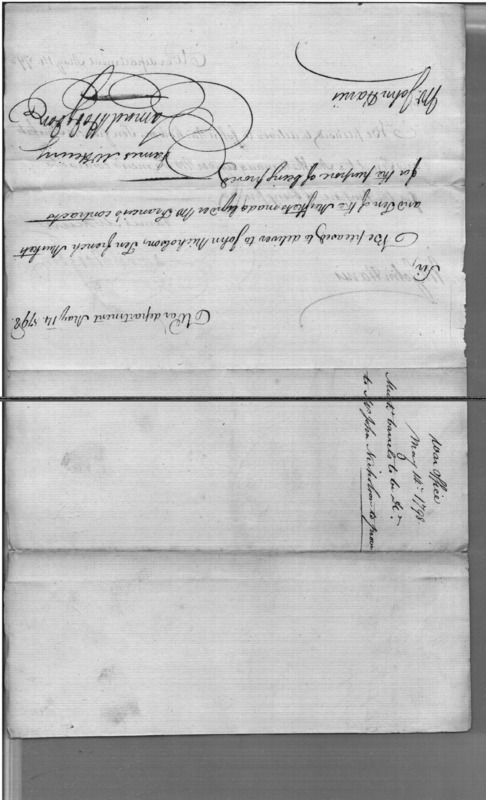 War department May 14. 1798.
Sir,
Be pleased to deliver to John Nicholson, Ten french Muskets
and Ten of the Muskets made under Mr Frances's contracts
for the purpose of being proved
James McHenry
Samuel Hodgdon
Mr. John Harris
War Office
May 14th 1798
Musk' barrels to be
to Mr John Nicholson to prove